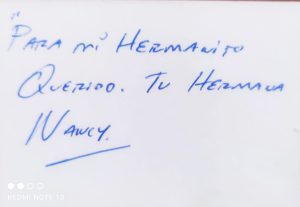 "PARA MI HERMANITO
QUERIDO. TU HERMANA
NANCY.
REDMI NOTE 10